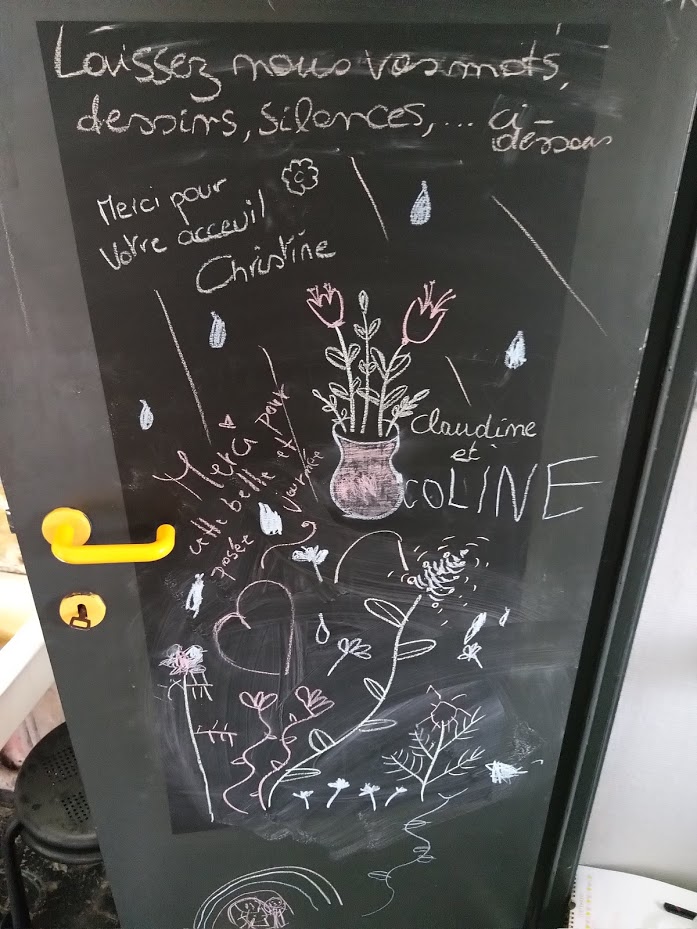 Laissez nous vos mots,
dessins, silences, ... ci-
dessous
Merci pour
votre acceuil
Christine
Claudine
et
COLINE
Merci pour
cette belle et
posée journée